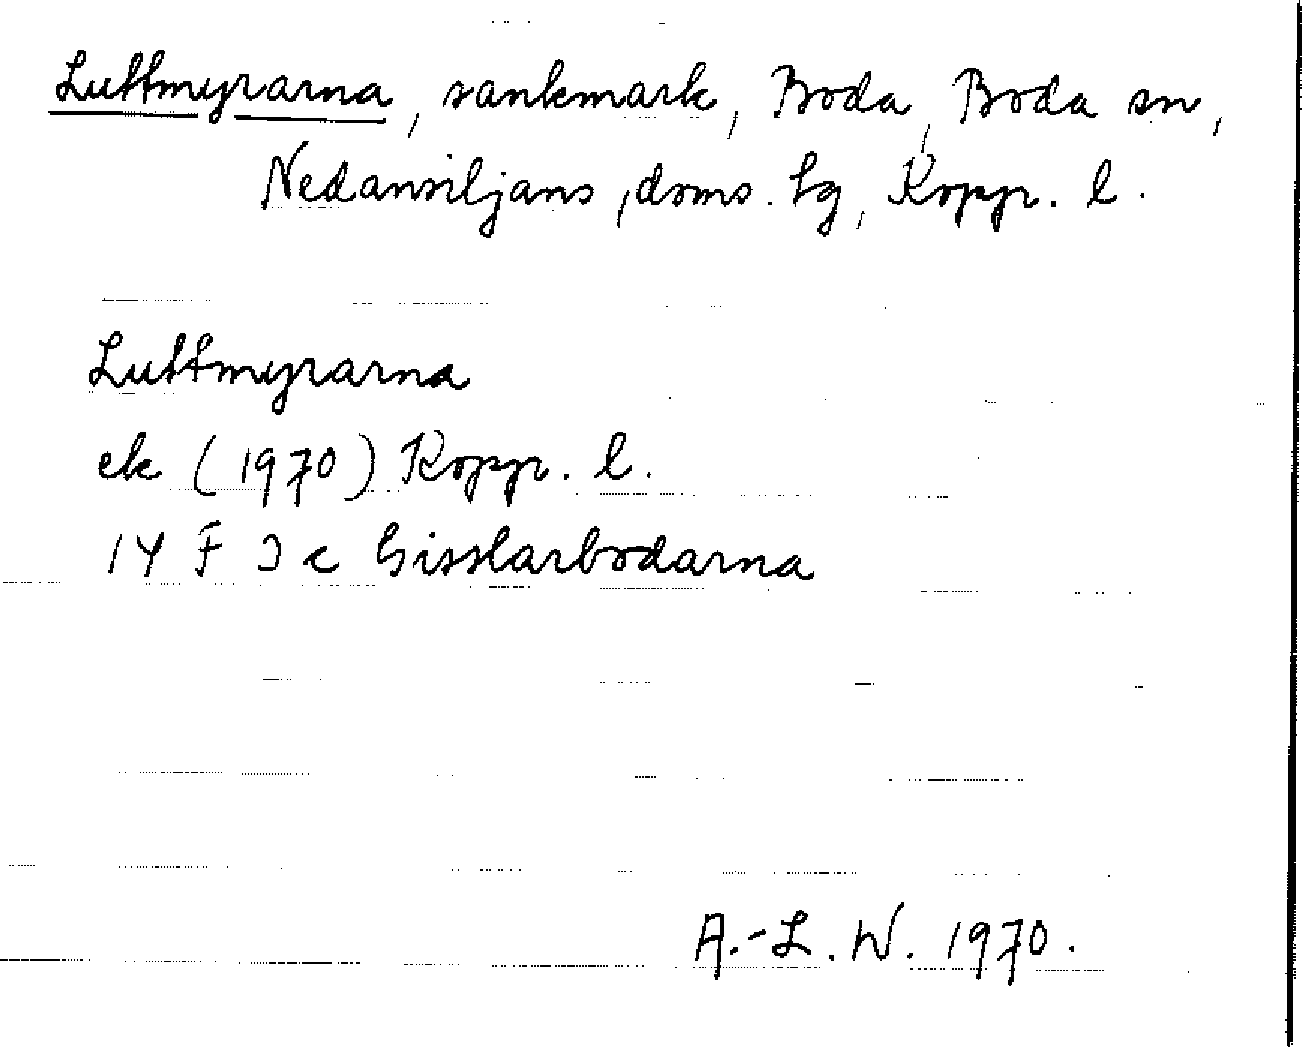 Luttmyrarna, sankmark, Boda, Boda sn,
Nedansiljans, doms. tg, Kopp. l.
Luttmyrarna
ek (1970) Kopp. l.
14 F 3 c Gisslarbodarna
A.-L. W. 1970.